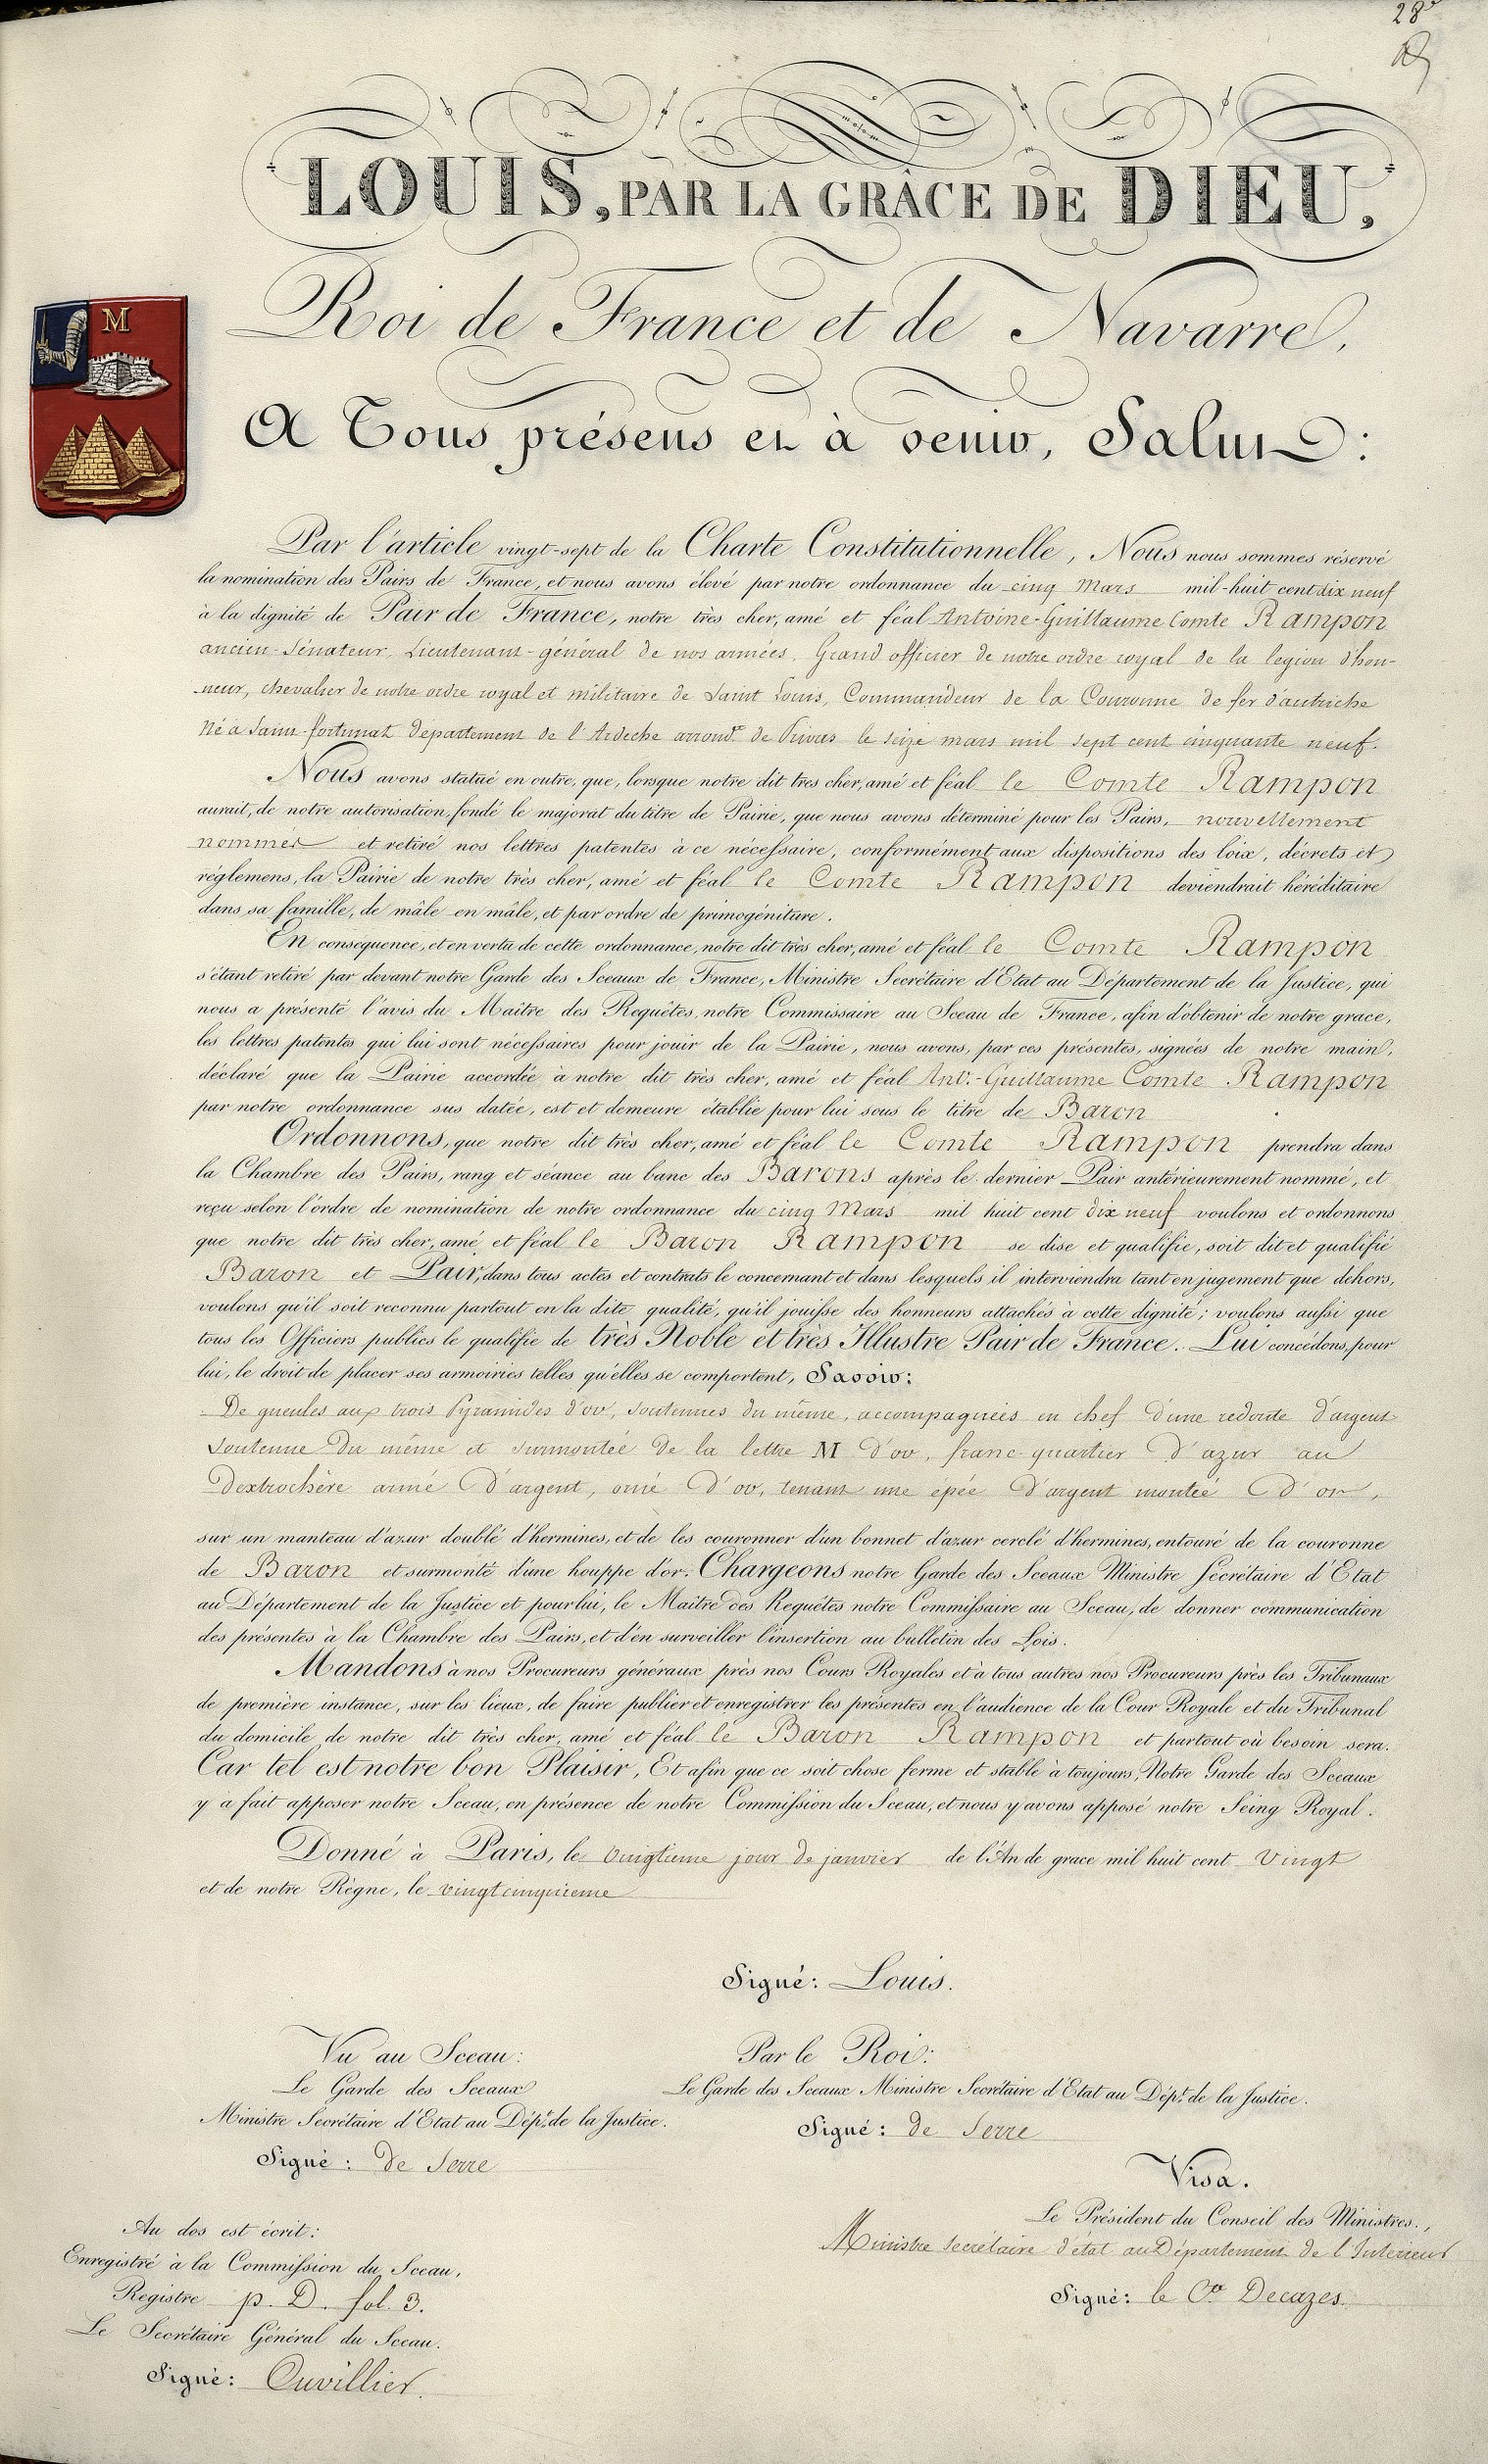 28e
LOUIS, PAR LA GRÂCE DE DIEU,
Roi de France et de Navarre,
M
A Tous présens et à venir, Salut:
Par l'article vingt-sept de la Charte Constitutionnelle, Nous nous sommes réservé
la nomination des Pairs de France, et nous avons élevé par notre ordonnance du cinq Mars mil-huit cent dix neuf
à la dignité de Pair de France, notre très cher, amé et féal Antoine-Guillaume Comte Rampon
ancien Sénateur, Lieutenant-général de nos armées, Grand officier de notre ordre royal de la légion d'hon-
neur, chevalier de notre ordre royal et militaire de Saint Louis, Commandeur de la Couronne de fer d'autriche
Né à Saint-fortunat département de l'Ardeche arrondt. de Privas le seize mars mil sept cent cinquante neuf.
Nous avons statué en outre, que, lorsque notre dit très cher, amé et féal le Comte Rampon
aurait, de notre autorisation, fondé le majorat du titre de Pairie, que nous avons déterminé pour les Pairs, nouvellement
nommés et retiré nos lettres patentes à ce nécessaire, conformément aux dispositions des loix, décrets et
réglemens, la Pairie de notre très cher, amé et féal le Comte Rampon deviendrait héréditaire
dans sa famille, de mâle en mâle, et par ordre de primogéniture.
En conséquence, et en vertu de cette ordonnance, notre dit très cher, amé et féal le Comte Rampon
s'étant retiré par devant notre Garde des Sceaux de France, Ministre Secrétaire d'Etat au Département de la Justice, qui
nous a présenté l'avis du Maître des Requêtes, notre Commissaire au Sceau de France, afin d'obtenir de notre grace,
les lettres patentes qui lui sont nécessaires pour jouir de la Pairie, nous avons, par ces présentes, signées de notre main,
déclaré que la Pairie accordée à notre dit très cher, amé et féal Ant.-Guillaume Comte Rampon
par notre ordonnance sus datée, est et demeure établie pour lui sous le titre de Baron
Ordonnons, que notre dit très cher, amé et féal le Comte Rampon prendra dans
la Chambre des Pairs, rang et séance au banc des Barons après le dernier Pair antérieurement nommé, et
reçu selon l'ordre de nomination de notre ordonnance du cinq Mars mil huit cent dix neuf voulons et ordonnons
que notre dit très cher, amé et féal le Baron Rampon se dise et qualifie, soit dit et qualifié
Baron et Pair, dans tous actes et contrats le concernant et dans lesquels il interviendra tant en jugement que dehors,
voulons qu'il soit reconnu partout en la dite qualité, qu'il jouisse des honneurs attachés à cette dignité; voulons aussi que
tous les Officiers publics le qualifie de très Noble et très Illustre Pair de France. Lui concédons, pour
lui, le droit de placer ses armoiries telles qu'elles se comportent, Savoir:
De gueules aux trois Pyramides d'or, soutenues du même, accompagnées en chef d'une redoute d'argent
soutenue du même et surmontée de la lettre M d'or, franc quartier d'azur au
Dextrochère armé d'argent, orné d'or, tenant une épée d'argent montée d'or,
sur un manteau d'azur doublé d'hermines, et de les couronner d'un bonnet d'azur cerclé d'hermines, entouré de la couronne
de Baron et surmonté d'une houppe d'or. Chargeons notre Garde des Sceaux Ministre Secrétaire d'Etat
au Département de la Justice et pour lui, le Maitre des Requêtes notre Commissaire au Sceau, de donner communication
des présentes à la Chambre des Pairs, et d'en surveiller l'insertion au bulletin des Lois.
Mandons à nos Procureurs généraux près nos Cours Royales et à tous autres nos Procureurs près les Tribunaux
de première instance, sur les lieux, de faire publier et enregistrer les présentes en l'audience de la Cour Royale et du Tribunal
du domicile de notre dit très cher, amé et féal le Baron Rampon et partout où besoin sera.
Car tel est notre bon Plaisir, Et afin que ce soit chose ferme et stable à toujours, Notre Garde des Sceaux
y a fait apposer notre Sceau, en présence de notre Commission du Sceau, et nous y avons apposé notre Seing Royal.
Donné à Paris, le vingtieme jour de janvier de l'An de grace mil huit cent Vingt
et de notre Règne, le vingt cinquieme
Signé: Louis.
Vu au Sceau:
Le Garde des Sceaux
Ministre Secrétaire d'Etat au Dépt. de la Justice.
Signé: de Serre
Par le Roi:
Le Garde des Sceaux Ministre Secrétaire d'Etat au Dépt. de la Justice.
Signé: de Serre
Visa.
Le Président du Conseil des Ministres.,
Ministre Secrétaire d'état au Département de l'Intérieur
Signé: le Cte Decazes.
Au dos est écrit:
Enregistré à la Commission du Sceau,
Registre p. D. fol. 3.
Le Secrétaire Général du Sceau.
Signé: Cuvillier.